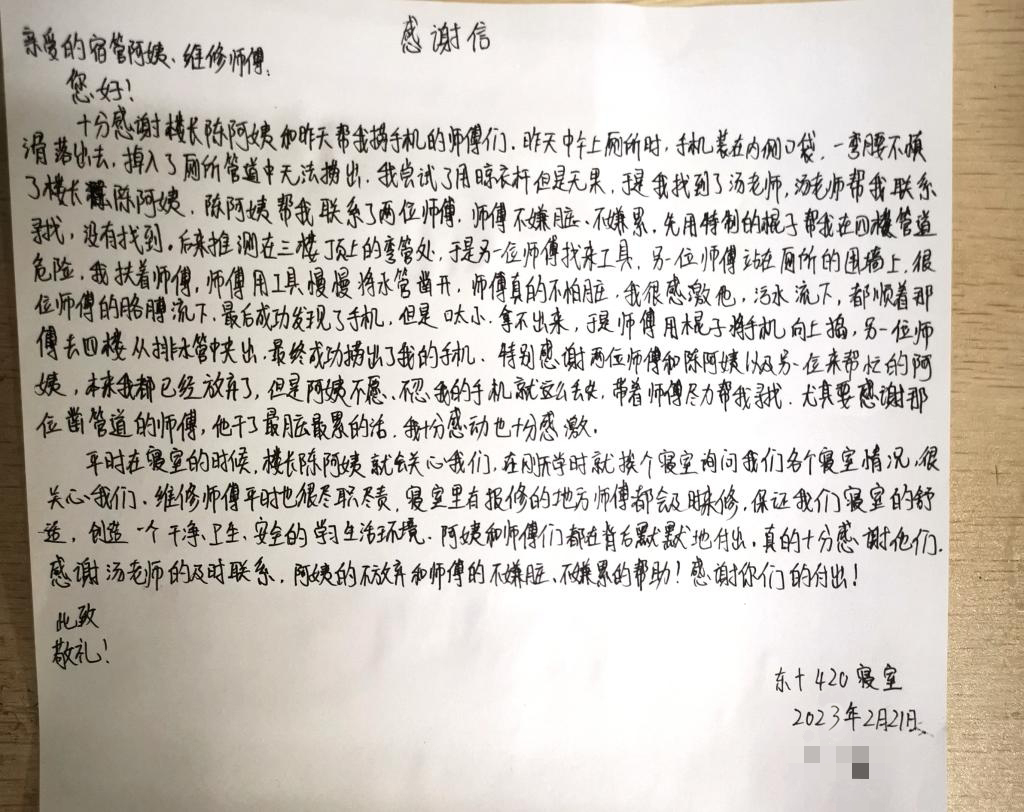 感谢信
亲爱的宿管阿姨、维修师傅:
您好!
十分感谢楼长陈阿姨和昨天帮我捞手机的师傅们。昨天中午上厕所时,手机装在内侧口袋,一弯腰不慎
滑落出去,掉入了厕所管道中无法捞出,我尝试了用晾衣杆但是无果,于是我找到了汤老师,汤老师帮我联系
了楼长陈阿姨,陈阿姨帮我联系了两位师傅,师傅不嫌脏、不嫌累,先用特制的棍子帮我在四楼管道
寻找,没有找到,后来推测在三楼顶上的弯管处,于是另一位师傅找来工具,另一位师傅站在厕所的围墙上,很
危险,我扶着师傅,师傅用工具慢慢将水管凿开,师傅真的不怕脏,我很感激他,污水流下,都顺着那
位师傅的胳膊流下,最后成功发现了手机,但是口太小,拿不出来,于是师傅用棍子将手机向上捣,另一位师
傅去四楼从排水管中夹出,最终成功捞出了我的手机。特别感谢两位师傅和陈阿姨以及另一位来帮忙的阿
姨,本来我都已经放弃了,但是阿姨不愿、不忍我的手机就这么丢失,带着师傅尽力帮我寻找,尤其要感谢那
位凿管道的师傅,他干了最脏最累的活,我十分感动也十分感激。
平时在寝室的时候,楼长陈阿姨就会关心我们,在刚开学时就挨个寝室询问我们各个寝室情况,很
关心我们,维修师傅平时也很尽职尽责,寝室里有报修的地方师傅都会及时来修,保证我们寝室的舒
适,创造一个干净、卫生、安全的学习生活环境。阿姨和师傅们都在背后默默地付出,真的十分感谢他们。
感谢汤老师的及时联系,阿姨的不放弃和师傅的不嫌脏、不嫌累的帮助!感谢你们的付出!
此致
敬礼!
东十420寝室
2023年2月21日